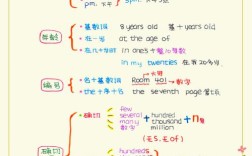 5pm. 下午
年龄
基数词 8 years old 某十years old
在…岁 at the age of
在几十岁时 in one's + 整10复数
in my twenties 在我20多岁
大写
编号
名+基数词 Room 401 → 数字
the + 序+名 the seventh page 第七页
确切
few
several
many
数字
+
hundred
thousand
million
+ n复
(无s, 无of)
确切
hundred